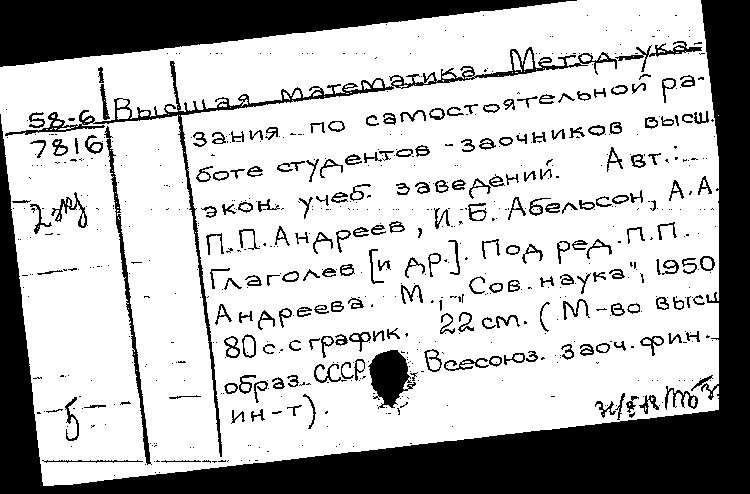 58-6 Высшая математика. Метод. ука-
7816 зания по самостоятельной ра-
боте студентов-заочников высш.
экон. учеб. заведений. Авт.:
П.П. Андреев, И.Б. Абельсон, А.А.
Глаголев [и др.]. Под ред. П.П.
Андреева. М., „Сов. наука", 1950
80 с. с график. 22 см. (М-во высш
образ. СССР Всесоюз. заоч. фин.
ин-т).